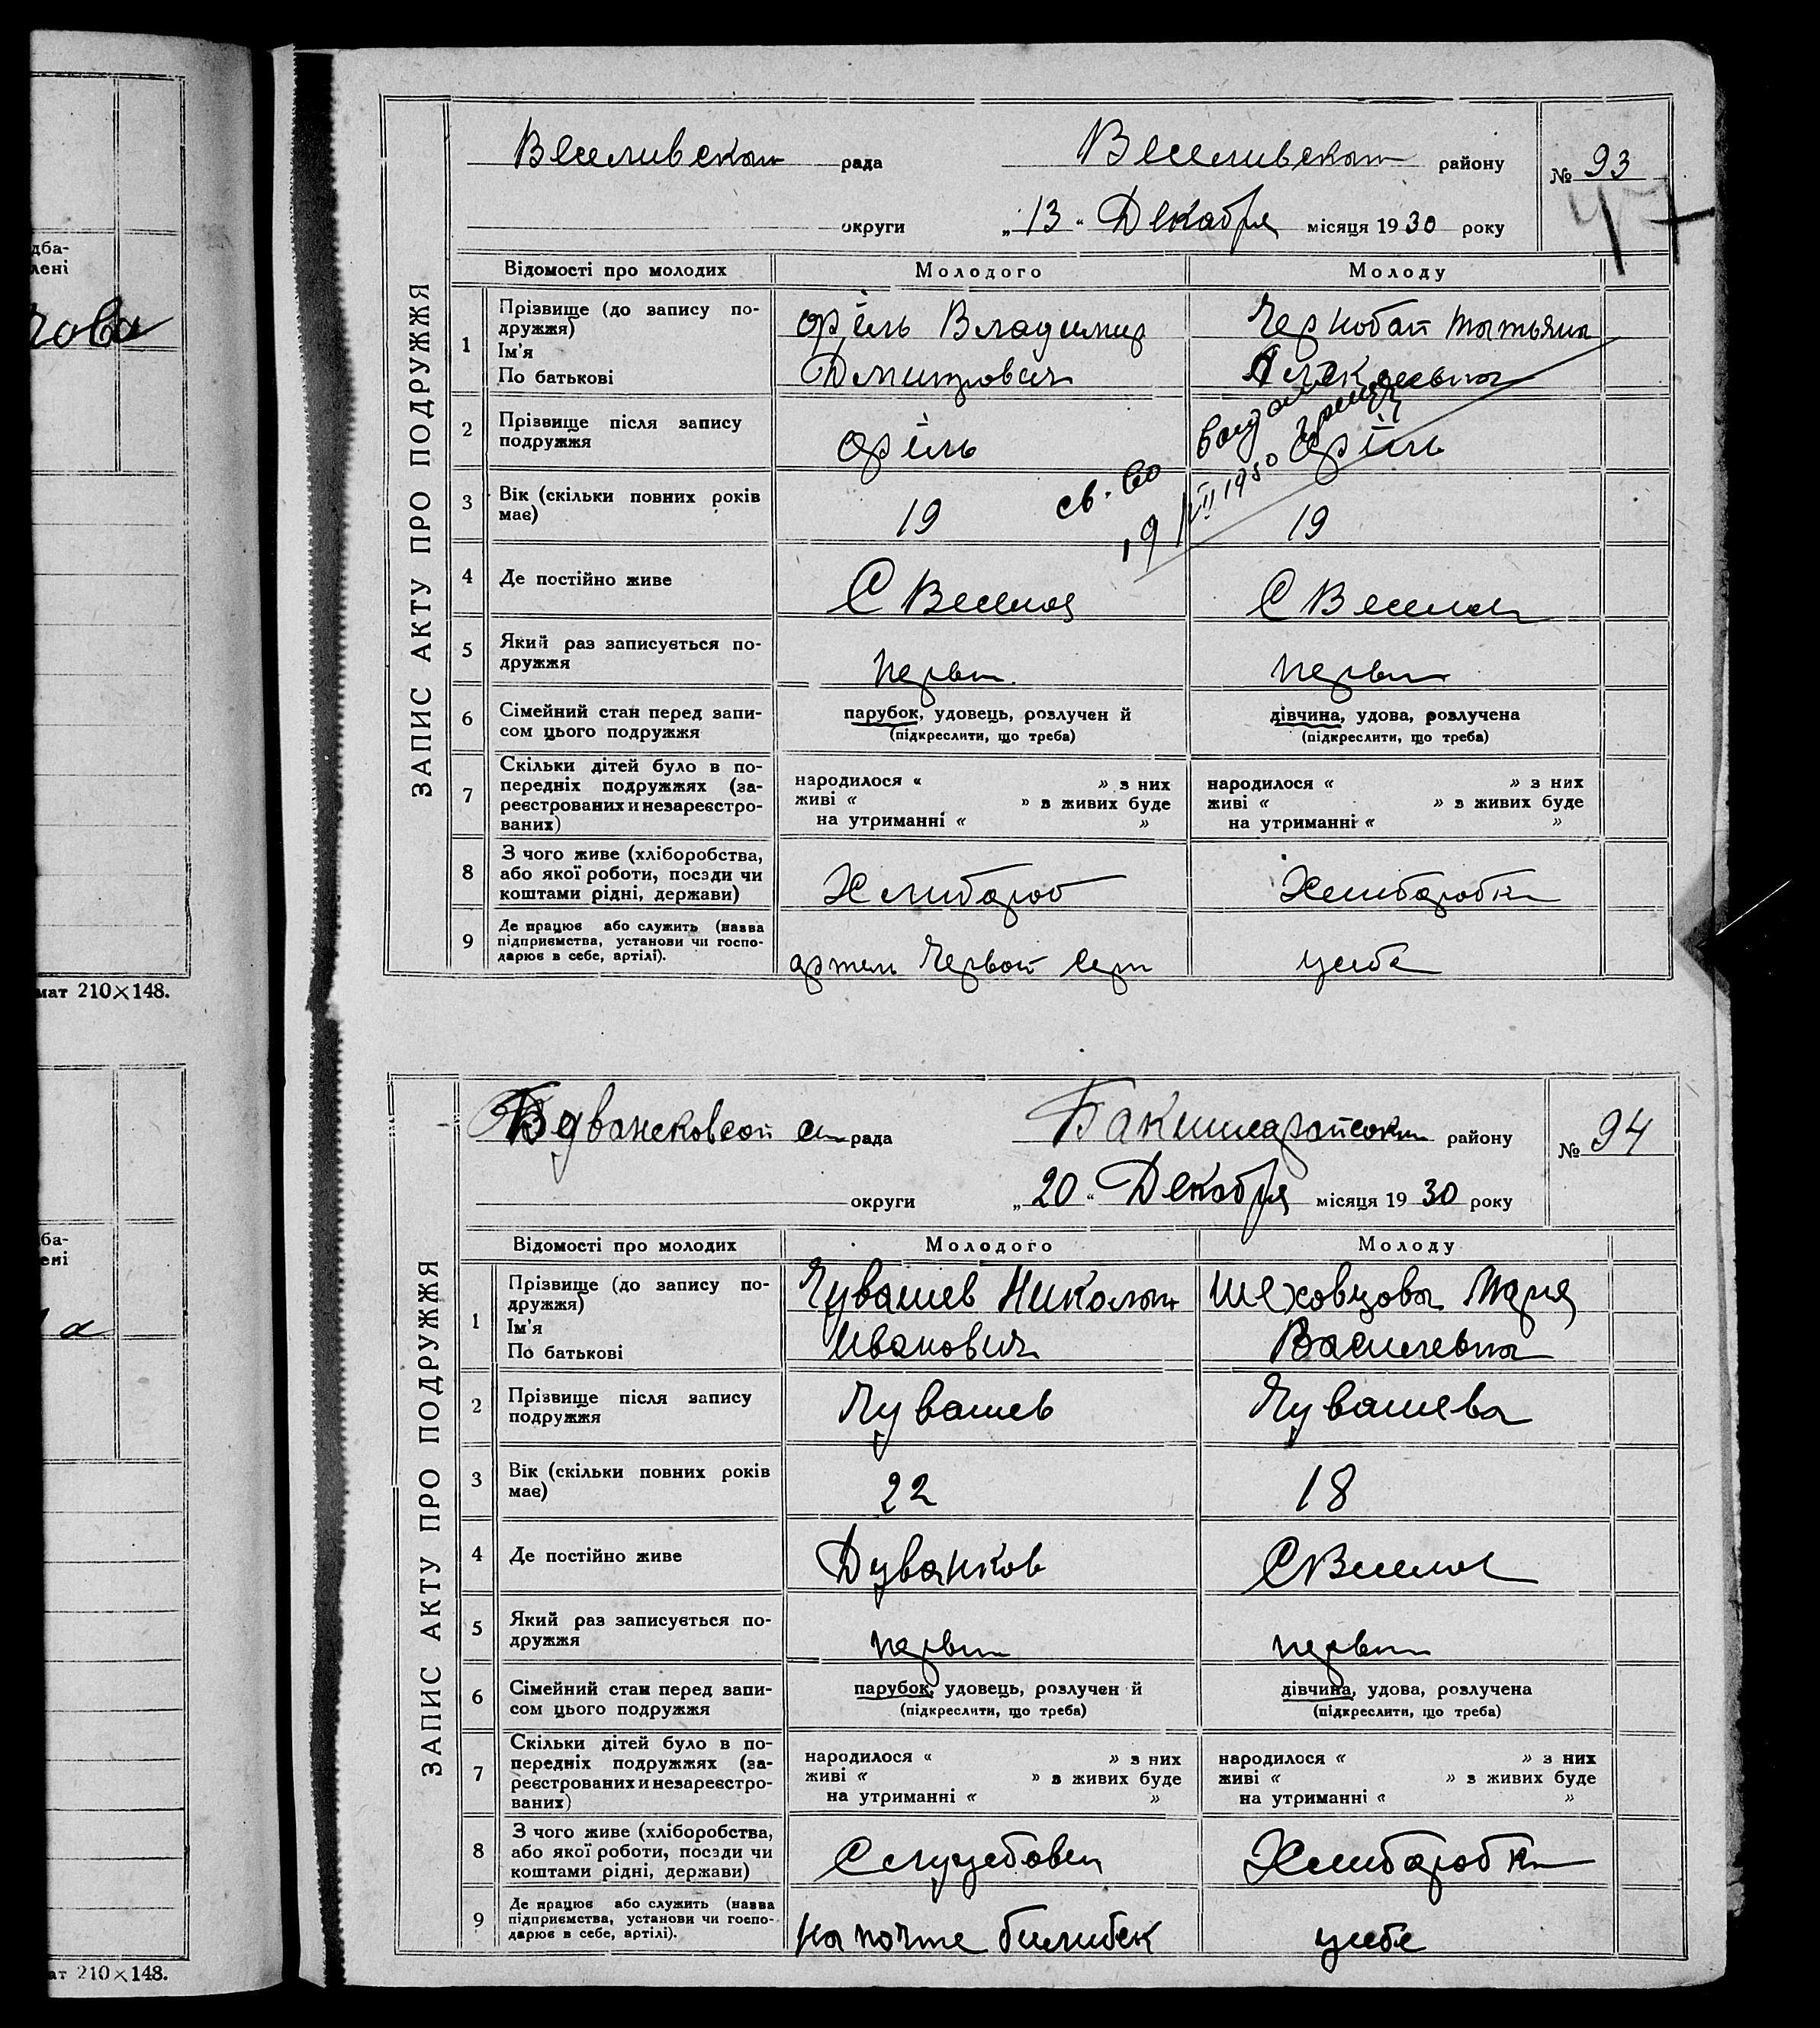 дба-
лені
чова
мат 210×148.
ба-
ені
а
ат 210×148.
ЗАПИС АКТУ ПРО ПОДРУЖЖЯ
Веселивская рада Веселивская району № 93
47
округи „13“ Декабря місяця 1930 року
Відомості про молодих Молодого Молоду
1 Прізвище (до запису по-
дружжя)
Ім'я
По батькові
Орёль Владимир
Дмитрович
Чернобай Татьяна
Алексеевна
2 Прізвище після запису
подружжя
Орёль
Орёль
св-во
19
II 1950
3 Вік (скільки повних років
має)
19
19
4 Де постійно живе
С Веселоя
С Веселое
5 Який раз записується по-
дружжя
первы
первы
6 Сімейний стан перед запи-
сом цього подружжя
парубок, удовець, розлучен й
(підкреслити, що треба)
дівчина, удова, розлучена
(підкреслити, що треба)
7 Скільки дітей було в по-
передніх подружжях (за-
реєстрованих и незареєстро-
ваних)
народилося « » з них
живі « » з живих буде
на утриманні « »
народилося « » з них
живі « » з живих буде
на утриманні « »
8 З чого живе (хліборобства,
або якої роботи, посади чи
коштами рідні, держави)
Хлибороб
Хлиборобка
9 Де працює або служить (назва
підприємства, установи чи госпо-
дарює в себе, артілі).
артель Червой
у себе
ЗАПИС АКТУ ПРО ПОДРУЖЖЯ
рада району № 94
округи „20“ Декабря місяця 1930 року
Відомості про молодих Молодого Молоду
1 Прізвище (до запису по-
дружжя)
Ім'я
По батькові
Чувашев Николай
Иванович
Шеховцова Мария
Василевна
2 Прізвище після запису
подружжя
Чувашев
Чувашева
3 Вік (скільки повних років
має)
22
18
4 Де постійно живе
Дуванков
С Веселое
5 Який раз записується по-
дружжя
первы
первы
6 Сімейний стан перед запи-
сом цього подружжя
парубок, удовець, розлучен й
(підкреслити, що треба)
дівчина, удова, розлучена
(підкреслити, що треба)
7 Скільки дітей було в по-
передніх подружжях (за-
реєстрованих и незареєстро-
ваних)
народилося « » з них
живі « » з живих буде
на утриманні « »
народилося « » з них
живі « » з живих буде
на утриманні « »
8 З чого живе (хліборобства,
або якої роботи, посади чи
коштами рідні, держави)
Службовец
Хлиборобка
9 Де працює або служить (назва
підприємства, установи чи госпо-
дарює в себе, артілі).
на почте билибек
у себе